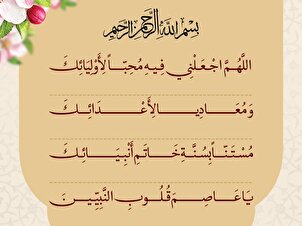 بسم الله الرحمن الرحيم
اللَّهُمَّ اجْعَلْنِي فِيهِ مُحِبًّا لِأَوْلِيَائِكَ
وَمُعَادِيًا لِأَعْدَائِكَ
مُسْتَنًّا بِسُنَّةِ خَاتَمِ أَنْبِيَائِكَ
يَا عَاصِمَ قُلُوبِ النَّبِيِّينَ